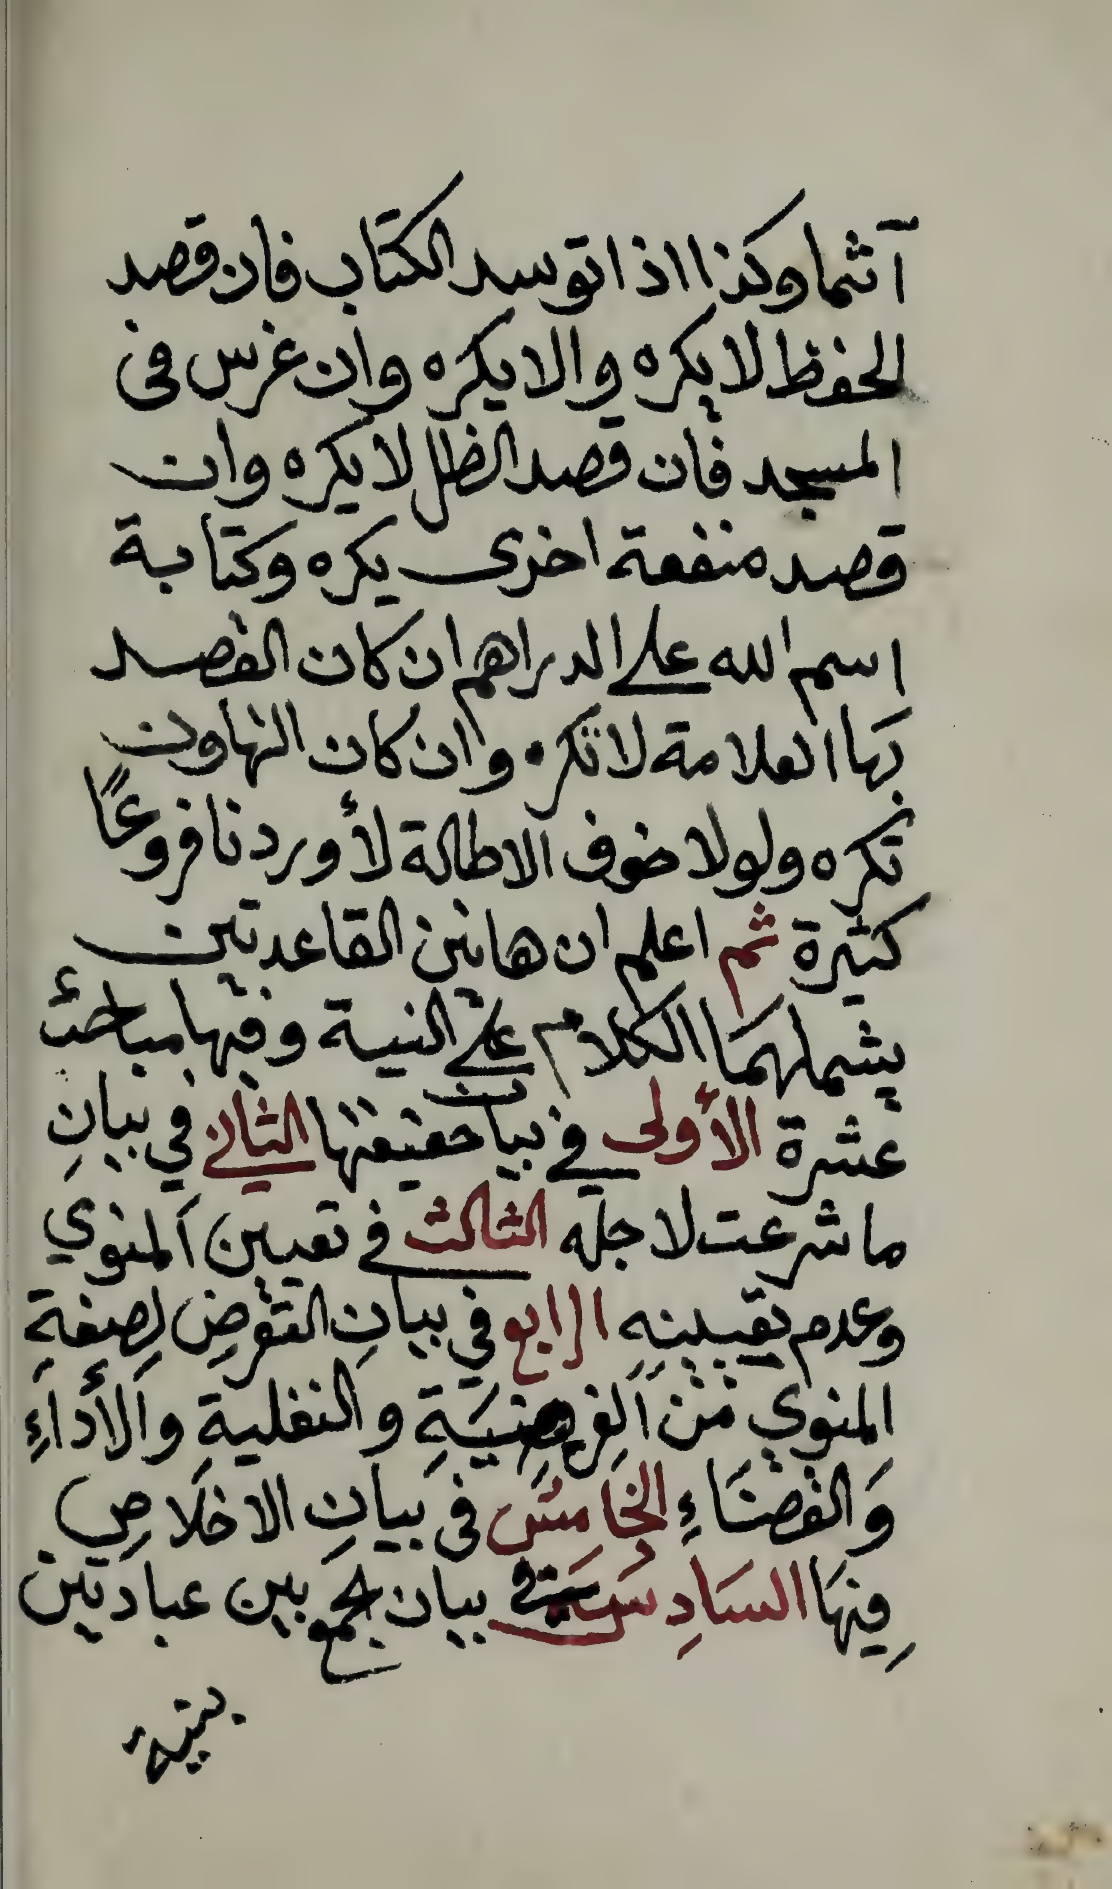 آثما وكذا اذا توسد الكتاب فان قصد
الحفظ لا يكره والا يكره وان غرس فى
المسجد فان قصد الظل لا يكره وان
قصد منفعة اخرى يكره وكتابة
اسم الله على الدراهم ان كان القصد
بها العلامة لا تكره وان كان التهاون
تكره ولولا خوف الاطالة لأوردنا فروعًا
كثيرة ثم اعلم ان هاتين القاعدتين
يشملهمَا الكلام على النية وفيها مباحث
عشرة الأولى في بيان حقيقتها الثاني في بيانِ
ما شرعت لاجله الثالث في تعيين المنوي
وعدم تعيينهِ الرابع في بيانِ التعرضِ لِصفةِ
المنوي من الفرضيَةِ والنفلية والأداءِ
وَالقضَاءِ الخامسُ فى بيانِ الاخلاصِ
فِيهَا السَادِسُ في بيان الجمع بين عبادتين
بنية